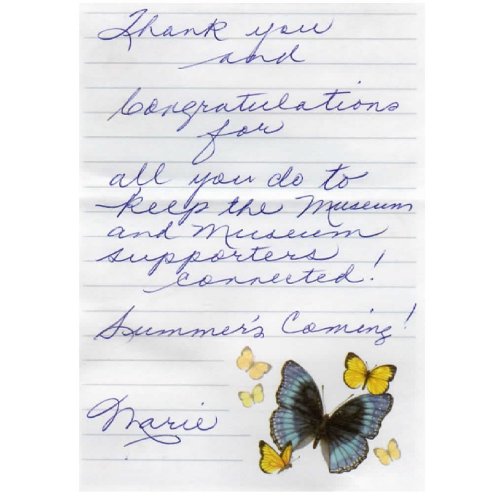 Thank you
and
Congratulations
for
all you do to
keep the Museum
and Museum
supporters
connected!
Summer's Coming!
Marie